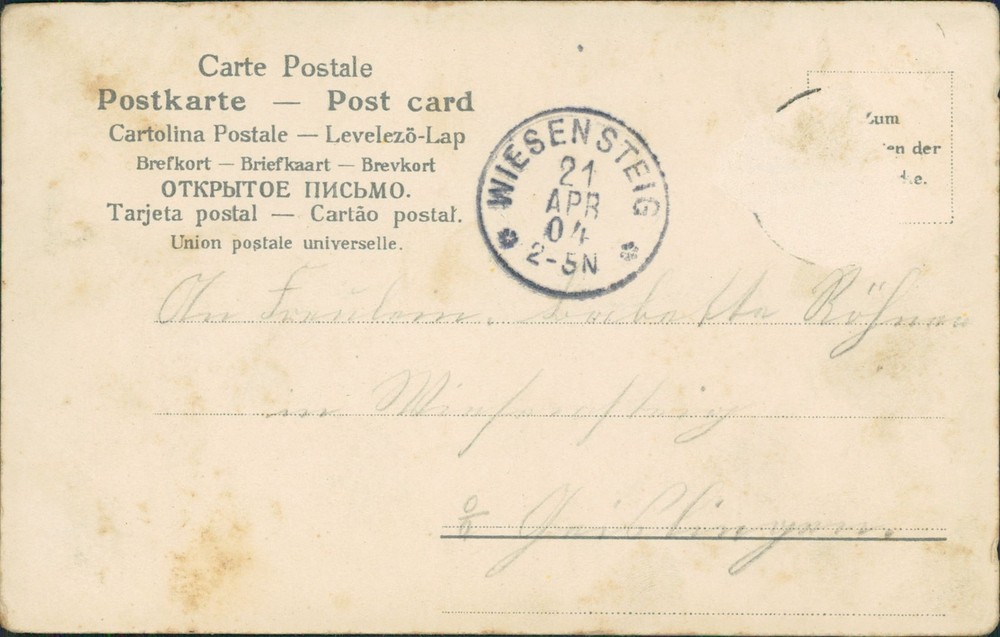 Carte Postale
Postkarte — Post card
Cartolina Postale — Levelező-Lap
Brefkort — Briefkaart — Brevkort
ОТКРЫТОЕ ПИСЬМО.
Tarjeta postal — Cartão postal.
Union postale universelle.
WIESENSTEIG
21
APR
04
2-5N
zum
der
An Freulein. Babette
in Wiesensteig
Geislingen.